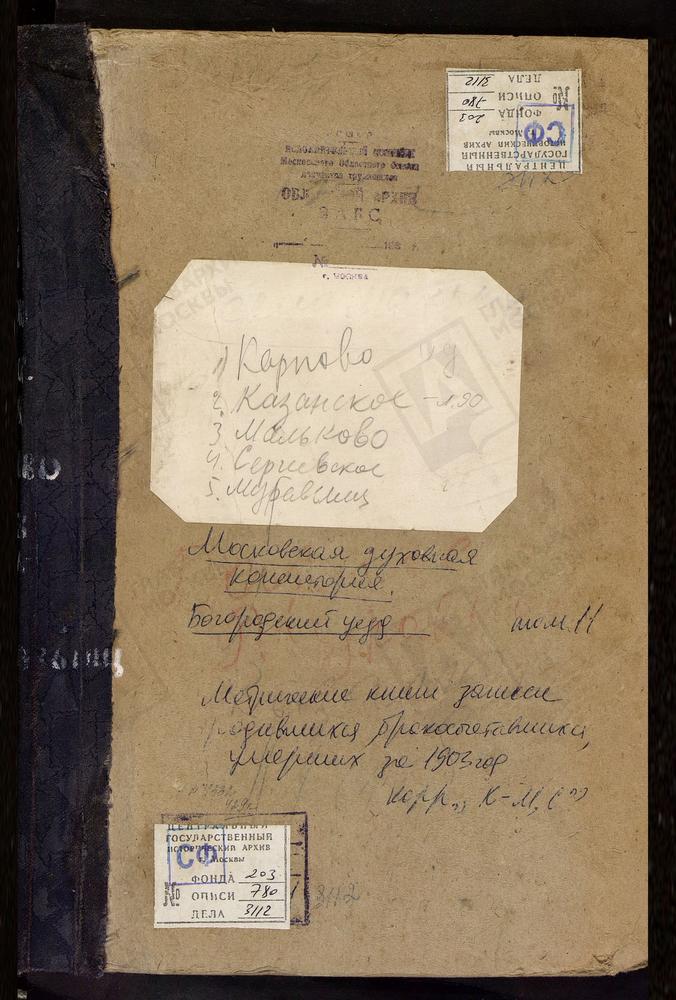 ЦЕНТРАЛЬНЫЙ
ГОСУДАРСТВЕННЫЙ
ИСТОРИЧЕСКИЙ АРХИВ
г. Москвы
СФ
ФОНДА 203
№ ОПИСИ 780
ДЕЛА 3112
3112
Московского Областного
депутатов трудящихся
ОБЛАСТНОЙ АРХИВ
ЗАГС
№
г. МОСКВА
1) Карпово
2. Казанское - л. 90
3. Мальково
4. Сергиевское
5.
Московская духовная
консистория.
Богородский уезд том 11
Метрические книги записи
родившихся, бракосочетавшихся,
умерших за 1903 год
Корр. „К-М, С"
ЦЕНТРАЛЬНЫЙ
ГОСУДАРСТВЕННЫЙ
ИСТОРИЧЕСКИЙ АРХИВ
г. Москвы
СФ
ФОНДА 203
№ ОПИСИ 780
ДЕЛА 3112
3112